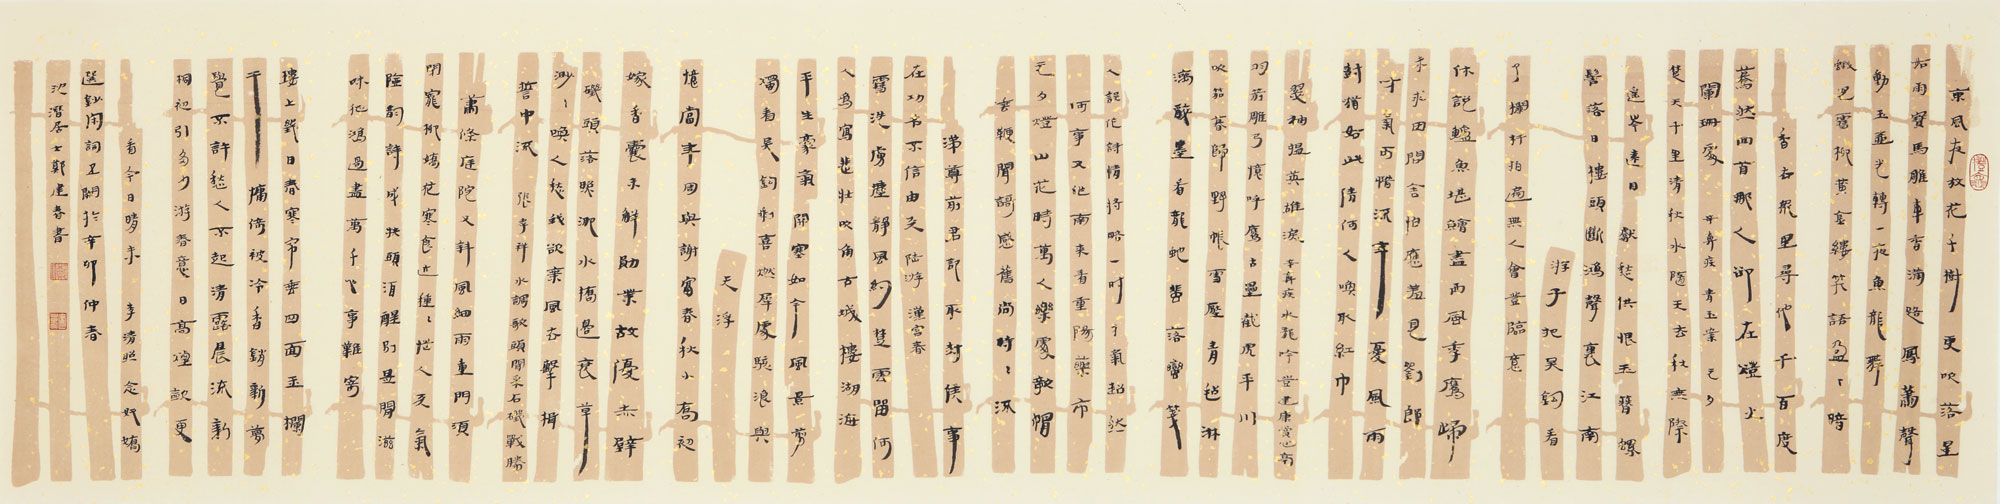 東風夜放花千樹 更吹落星
如雨寶馬雕車香滿路鳳簫聲
動玉壺光轉一夜魚龍舞
蛾兒雪柳黃金縷笑語盈〻暗
香去眾里尋他千百度
驀然回首那人卻在燈火
闌珊處 辛棄疾 青玉案 元夕
楚天千里清秋水隨天去秋無際
遙岑遠目獻愁供恨玉簪螺
髻落日樓頭斷鴻聲裏江南
游子把吳鉤看
了欄杆拍遍無人會登臨意
休說鱸魚堪鱠盡西風季鷹歸
未求田問舍怕應羞見劉郎
才氣可惜流年憂風雨
樹猶如此倩何人喚取紅巾
翠袖搵英雄淚 辛棄疾水龍吟登建康賞心亭
羽箭雕弓憶呼鷹古壘截虎平川
吹笳暮歸野帳雪壓青氈淋
漓醉墨看龍蛇飛落蠻箋
人誤許詩情將略一時才氣超然
何事又作南來看重陽藥市
元夕燈山花時萬人樂處敧帽
垂鞭聞歌感舊尚時〻流
涕尊前君記取封侯事
在功名不信由天 陸游 漢宮春
雪洗虜塵靜風約楚雲留何
人為寫悲壯吹角古城樓湖海
平生豪氣關塞如今風景剪
燭看吳鉤剩喜燃犀處駭浪與
天浮
憶當年周與謝富春秋小喬初
嫁香囊未解勛業故優赤壁
磯頭落照淝水橋邊衰草
渺〻喚人愁我欲乘風去擊楫
誓中流 張孝祥 水調歌頭聞采石磯戰勝
蕭條庭院又斜風細雨重門須
閉寵柳嬌花寒食近種〻惱人天氣
險韻詩成扶頭酒醒別是閒滋
味征鴻過盡萬千心事難寄
樓上幾日春寒帘垂四面玉欄
干慵倚被冷香銷新夢
覺不許愁人不起清露晨流新
桐初引多少游春意日高煙斂更
看今日晴未 李清照 念奴嬌
選鈔閑詞五闋於辛卯仲春
沈潛居士鄭建春書